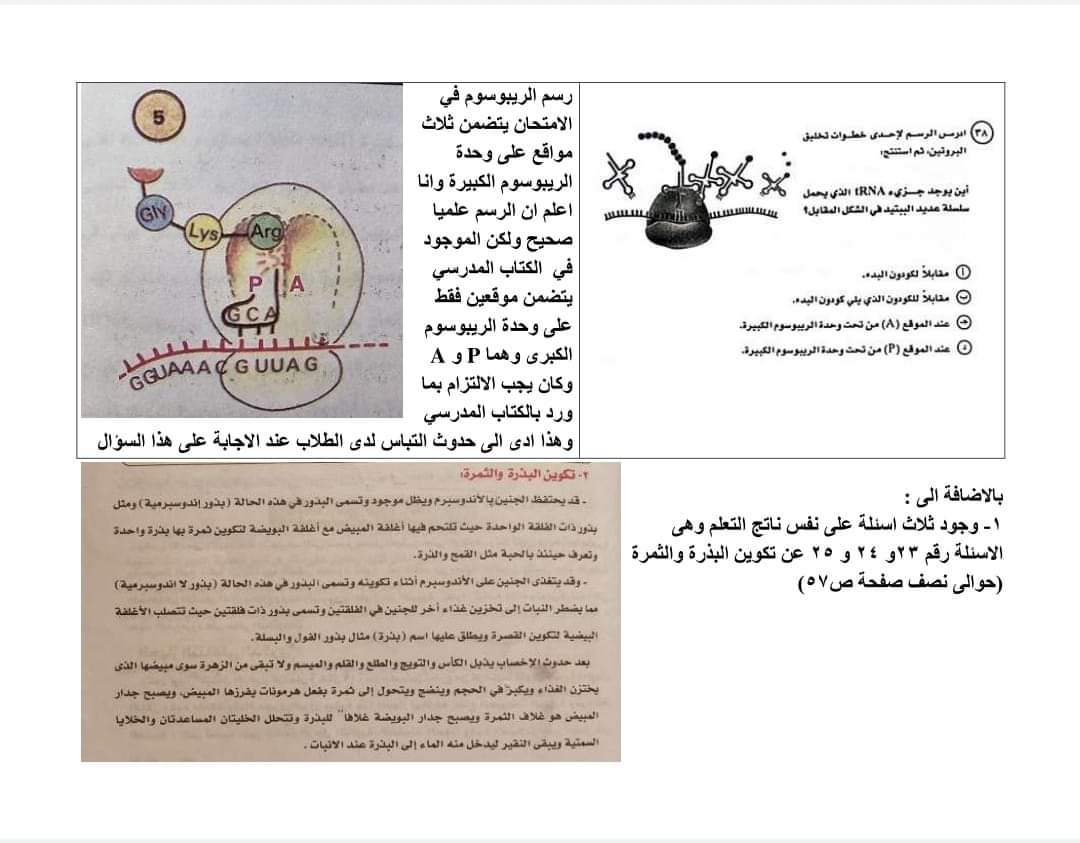 رسم الريبوسوم في
الامتحان يتضمن ثلاث
مواقع على وحدة
الريبوسوم الكبيرة وانا
اعلم ان الرسم علميا
صحيح ولكن الموجود
في الكتاب المدرسي
يتضمن موقعين فقط
على وحدة الريبوسوم
الكبرى وهما P و A
وكان يجب الالتزام بما
ورد بالكتاب المدرسي
وهذا ادى الى حدوث التباس لدى الطلاب عند الاجابة على هذا السؤال
٣٨ ادرس الرسم لإحدى خطوات تخليق
البروتين، ثم استنتج:
أين يوجد جزيء tRNA الذي يحمل
سلسلة عديد الببتيد في الشكل المقابل؟
أ مقابلاً لكودون البدء.
ب مقابلاً للكودون الذي يلي كودون البدء.
ج عند الموقع (A) من تحت وحدة الريبوسوم الكبيرة.
د عند الموقع (P) من تحت وحدة الريبوسوم الكبيرة.
5
Gly
Lys
Arg
P A
GCA
GGUAAACGUUAG
بالاضافة الى :
١- وجود ثلاث اسئلة على نفس ناتج التعلم وهى
الاسئلة رقم ٢٣و ٢٤ و ٢٥ عن تكوين البذرة والثمرة
(حوالى نصف صفحة ص٥٧)
٢- تكوين البذرة والثمرة:
ـ قد يحتفظ الجنين بالأندوسبرم ويظل موجود وتسمى البذور في هذه الحالة (بذور إندوسبرمية) ومثل
بذور ذات الفلقة الواحدة حيث تلتحم فيها أغلفة المبيض مع أغلفة البويضة لتكوين ثمرة بها بذرة واحدة
وتعرف حينئذ بالحبة مثل القمح والذرة.
ـ وقد يتغذى الجنين على الأندوسبرم أثناء تكوينه وتسمى البذور في هذه الحالة (بذور لا اندوسبرمية)
مما يضطر النبات إلى تخزين غذاء أخر للجنين في الفلقتين وتسمى بذور ذات فلقتين حيث تتصلب الأغلفة
البيضية لتكوين القصرة ويطلق عليها اسم (بذرة) مثال بذور الفول والبسلة.
بعد حدوث الإخصاب يذبل الكأس والتويج والطلع والقلم والميسم ولا تبقى من الزهرة سوى مبيضها الذى
يختزن الغذاء ويكبر في الحجم وينضج ويتحول إلى ثمرة بفعل هرمونات يفرزها المبيض، ويصبح جدار
المبيض هو غلاف الثمرة ويصبح جدار البويضة غلافاً للبذرة وتتحلل الخليتان المساعدتان والخلايا
السمتية ويبقى النقير ليدخل منه الماء إلى البذرة عند الانبات .